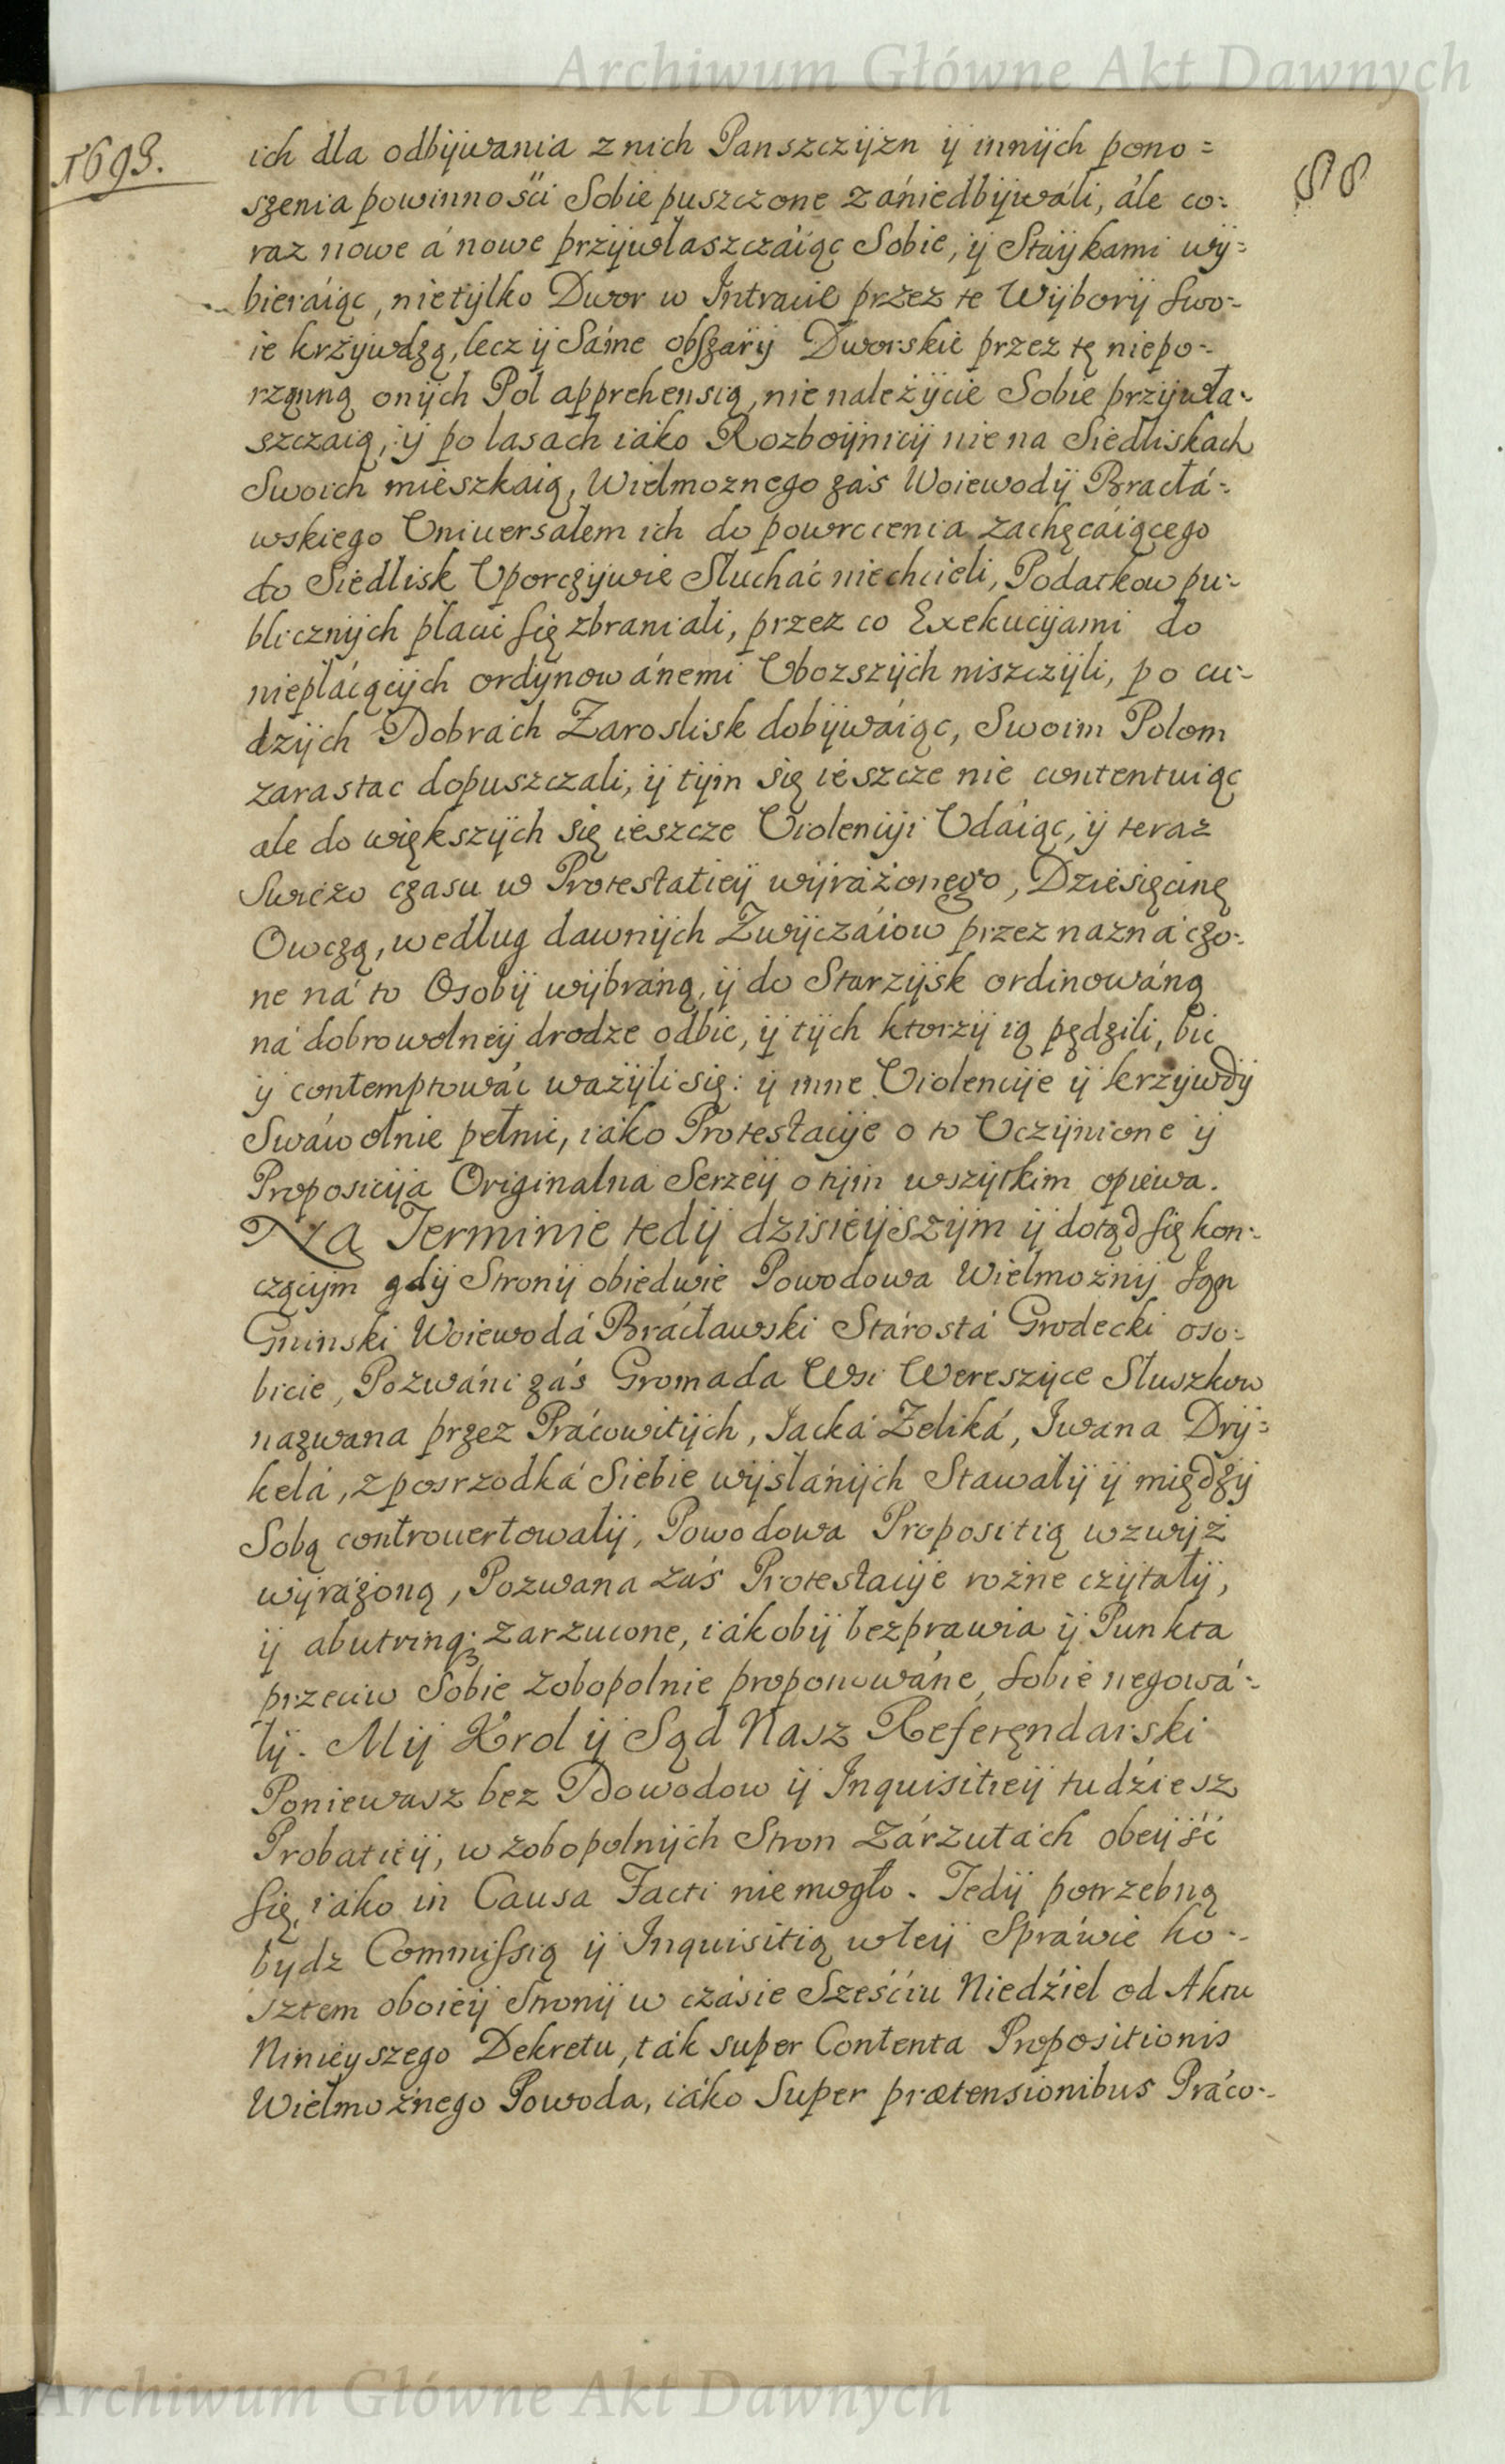 Archiwum Główne Akt Dawnych
1693.
88
ich dla odbijwania z nich Panszczijzn ij innijch pono=
szenia powinnośći Sobie puszczone zániedbijwáli, ále co=
raz nowe á nowe przijwłaszczáiąc Sobie, ij Staijkami wij=
bieráiąc, nietijlko Dwor w Intracie przez te Wijborij swo=
ie krzijwdzą, lecz ij Sáme obszarij Dworskie przez tę niepo=
rządną onijch Pol apprehensią, nie należijcie Sobie przijwła=
szczaią, ij po lasach iáko Rozboijnicij nie na Siedliskach
Swoich mieszkaią, Wielmoznego zaś Woiewodij Bracłá=
wskiego Uniwersałem ich do powrocenia zachęcáiącego
do Siedlisk Uporczijwie Słucháć niechcieli, Podatkow pu=
blicznijch płacić się zbraniali, przez co Exekucijami do
niepłácącijch ordijnowánemi Ubozszijch niszczijli, po cu=
dzijch Dobrach Zaroslisk dobijwáiąc, Swoim Polom
zarastac dopuszczali, ij tijm się ieszcze nie contentuiąc
ale do większijch się ieszcze Violenciji Udáiąc, ij teraz
Swiezo czasu w Protestatieij wijráżonego, Dziesięcinę
Owczą, według dawnijch Zwijczáiow przez náznáczo=
ne ná to Osobij wijbráną, ij do Starzijsk ordinowáną
ná dobrowolneij drodze odbic, ij tijch ktorzij ią pędzili, bic
ij contemptowáć ważijli się: ij inne Violencije ij krzijwdij
Swáwolnie pełnić, iáko Protestacije o to Uczijnione ij
Proposicija Originalna Serzeij o tijm wszijtkim opiewa.
Na Terminie tedij dzisieijszijm ij dotąd się kon=
czącijm gdij Stronij obiedwie Powodowa Wielmożnij Jgo
Gninski Woiewodá Brácławski Stárostá Grodecki oso=
biscie, Pozwáni záś Gromada Wsi Wereszijce Słuszkow
nazwana przez Prácowitijch, Jacká Zeliká, Jwana Drij=
kela, z posrzodká Siebie wijsłánijch Stawałij ij międzij
Sobą controuertowałij, Powodowa Propositią wzwijż
wijráżoną, Pozwana záś Protestacije rożne czijtałij,
ij abutrinq; zarzucone, iákobij bezprawia ij Punkta
przeciw Sobie zobopolnie proponowáne, sobie negowá=
łij. Mij Krol ij Sąd Nasz Referęndarski
Poniewasz bez Dowodow ij Inquisitieij tudźiesz
Probatieij, w zobopolnijch Stron Zárzutách obeijść
się, iáko in Causa Facti niemogło. Tedij potrzebną
bydz Commissią ij Inquisitią w teij Spráwie ko=
sztem oboieij Stronij w czásie Sześćiu Niedźiel od Aktu
Ninieyszego Dekretu, ták super Contenta Propositionis
Wielmożnego Powoda, iáko Super prætensionibus Práco=
Archiwum Główne Akt Dawnych